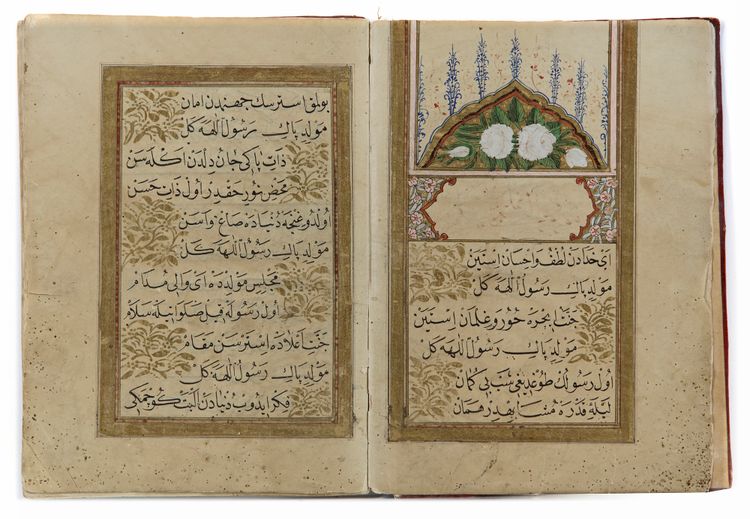 ای خدادن لطف و احسان استین
مولد پاك رسول اللهه كل
جنت ایچره حور و غلمان استین
مولد پاك رسول اللهه كل
اول رسولك طوغدیغی شب بی كمان
لیلۀ قدره مشابهدر همان
بولمق استرسك جهنمدن امان
مولد پاك رسول اللهه كل
ذات پاكی جان دلدن اكله سن
محض نور حقدر اول ذات حسن
اولدی غنجه دنیاده صاغ و اسن
مولد پاك رسول اللهه كل
مجلس مولدده ای والی مدام
اول رسوله قیل صلوات ایله سلام
جنت اعلاده استرسن مقام
مولد پاك رسول اللهه كل
فكر ایدوب دنیادن البت كوچمكی